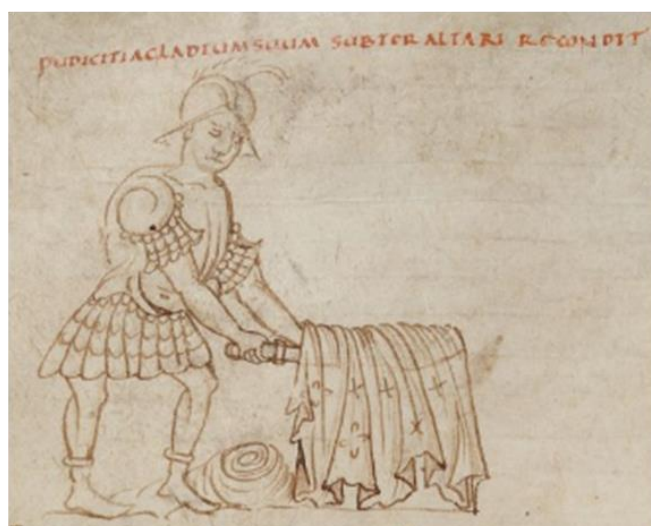 PUDICITIA GLADIUM SUUM SUBTER ALTARI RECONDIT